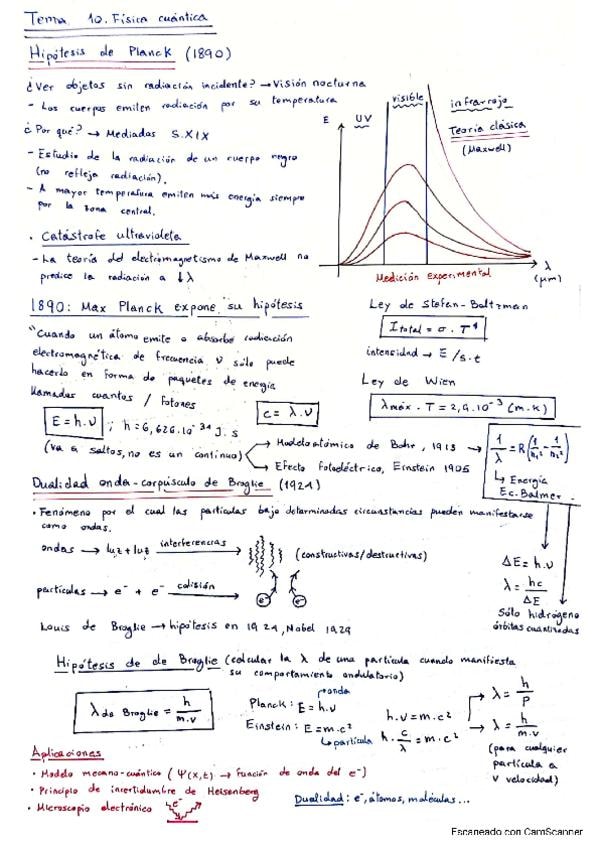 Tema 10. Física cuántica
Hipótesis de Planck (1890)
¿Ver objetos sin radiación incidente? → Visión nocturna
- Los cuerpos emiten radiación por su temperatura
¿Por qué? → Mediados S.XIX
- Estudio de la radiación de un cuerpo negro
(no refleja radiación).
- A mayor temperatura emiten más energía siempre
por la zona central.
· Catástrofe ultravioleta
- La teoría del electromagnetismo de Maxwell no
predice la radiación a ↓λ
E
UV
visible
infrarrojo
Teoría clásica
(Maxwell)
λ
(μm)
Medición experimental
1890: Max Planck expone su hipótesis
"Cuando un átomo emite o absorbe radiación
electromagnética de frecuencia ν sólo puede
hacerlo en forma de paquetes de energía
llamadas cuantos / fotones
E = h.ν ; h = 6,626.10⁻³⁴ J.s
c = λ.ν
(va a saltos, no es un continuo)
→ Modelo atómico de Bohr, 1913 →
→ Efecto fotoeléctrico, Einstein 1905
Ley de Stefan-Boltzman
I total = σ . T⁴
intensidad → E /s.t
Ley de Wien
λ máx . T = 2,9.10⁻³ (m.k)
1/λ = R(1/n₁² - 1/n₂²)
↳ Energía
Ec. Balmer.
ΔE = h.ν
λ = hc/ΔE
Sólo hidrógeno
órbitas cuantizadas
Dualidad onda-corpúsculo de Broglie (1924)
· Fenómeno por el cual las partículas bajo determinadas circunstancias pueden manifestarse
como ondas.
ondas → luz + luz interferencias → (constructivas/destructivas)
partículas → e⁻ + e⁻ colisión → e⁻ e⁻
Louis de Broglie → hipótesis en 1924, Nobel 1929
Hipótesis de de Broglie (calcular la λ de una partícula cuando manifiesta
su comportamiento ondulatorio)
λ de Broglie = h/m.v
→onda
Planck: E = h.ν
Einstein: E = m.c²
↳ partícula
h.ν = m.c²
h . c/λ = m.c²
→ λ = h/p
→ λ = h/m.v
(para cualquier
partícula a
v velocidad)
Aplicaciones
· Modelo mecano-cuántico (Ψ(x,t) → función de onda del e⁻)
· Principio de incertidumbre de Heisenberg
· Microscopio electrónico e⁻
Dualidad: e⁻, átomos, moléculas...
Escaneado con CamScanner